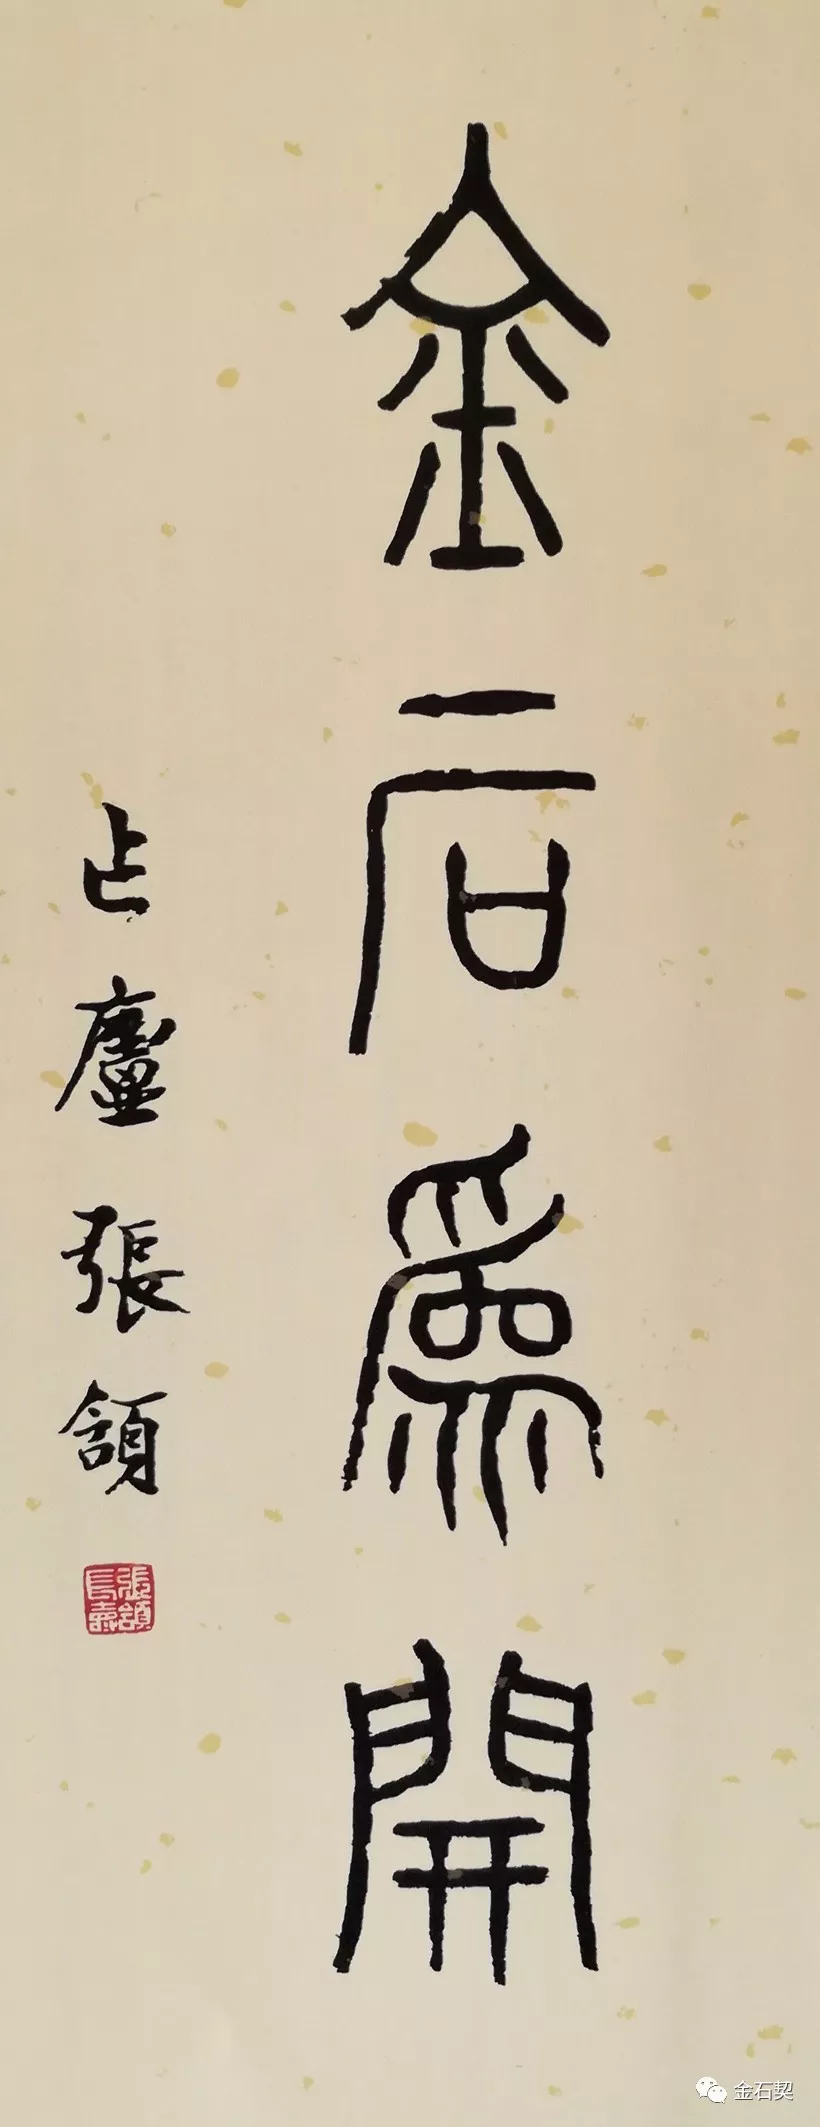 金石爲開
乍廬張頷
張頷長壽
金石契